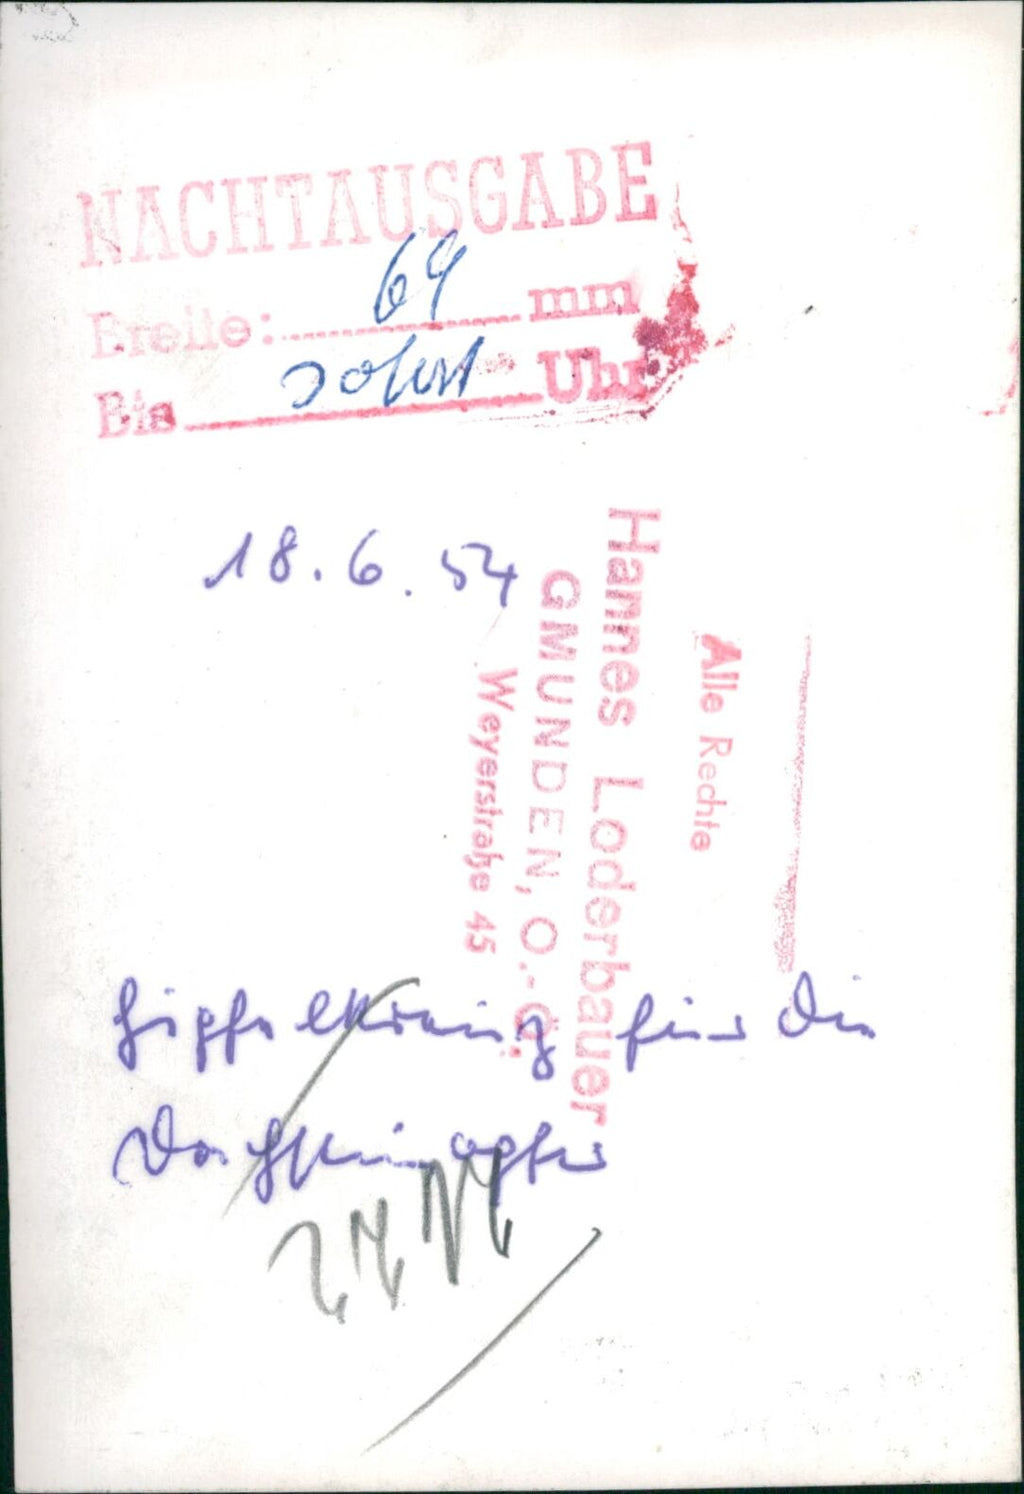 NACHTAUSGABE
Breite: 69 mm
Bis sofort Uhr
18.6.54
Alle Rechte
Hannes Loderbauer
GMUNDEN, O.-Ö.
Weyerstraße 45
Gipfelkreuz für die
Dachsteinopfer